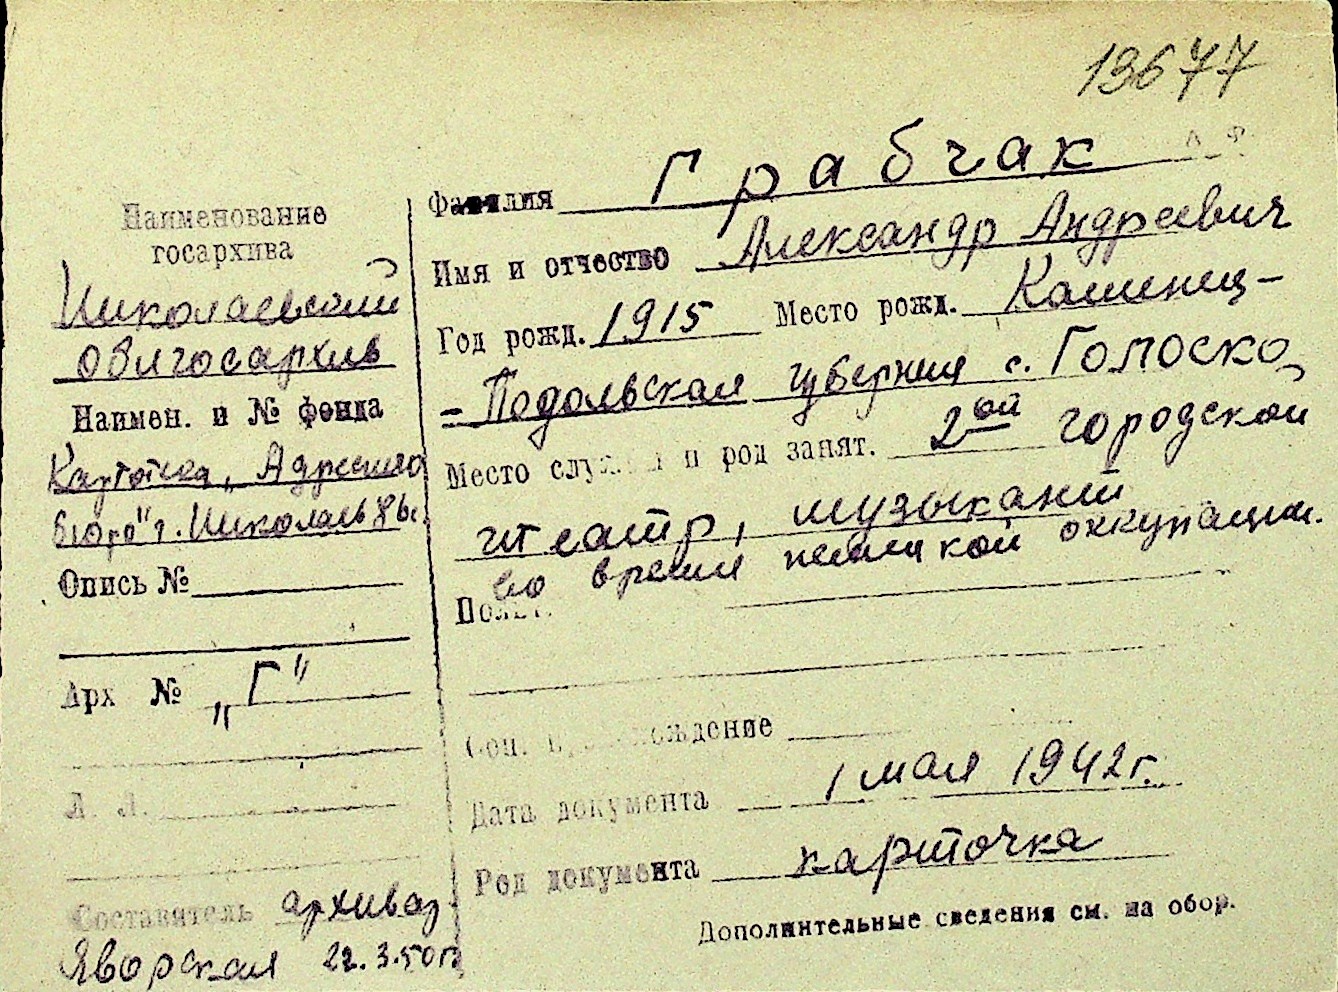 13677
Наименование
госархива
Николаевский
облгосархив
Наимен. и № фонда
Картотека „Адресного
бюро" г. Николаев
Опись №
Арх №
„Г"
Л. Л.
Составитель архивар
Яворская 22.3.50г
Фамилия Грабчак
Имя и отчество Александр Андреевич
Год рожд. 1915 Место рожд. Каменец-
-Подольская губерния с. Голоско
Место службы и род занят. 2ой городской
театр, музыкант
во время немецкой оккупации.
Полит.
Соц. происхождение
Дата документа 1 мая 1942г.
Род документа карточка
Дополнительные сведения см. на обор.